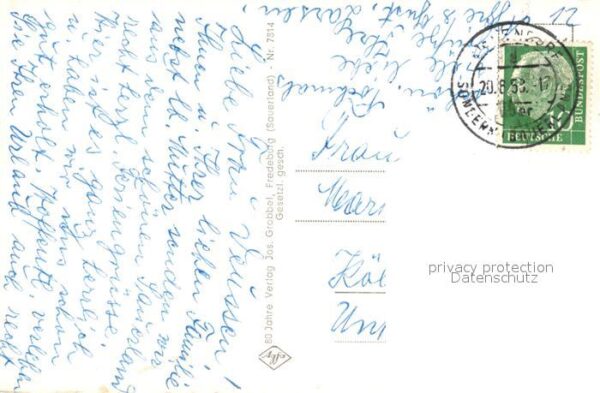 Liebe Frau
Ihnen u. Ihrer lieben Familie
nebst lb. Mutter senden wir
aus dem schönen Sauerland
recht herzl. Feriengrüsse.
Hier ist es ganz herrlich
u. haben wir uns schon
gut erholt. Hoffentl. verleben
Sie Ihren Urlaub auch recht
schön. Nochmals
liebe
Grüsse Ihre
80 Jahre Verlag Jos. Grobbel, Fredeburg (Sauerland) - Nr. 7814
Gesetzl. gesch.
Frau
Köl
DEUTSCHE
BUNDESPOST
10
20.8.58.-17
privacy protection
Datenschutz